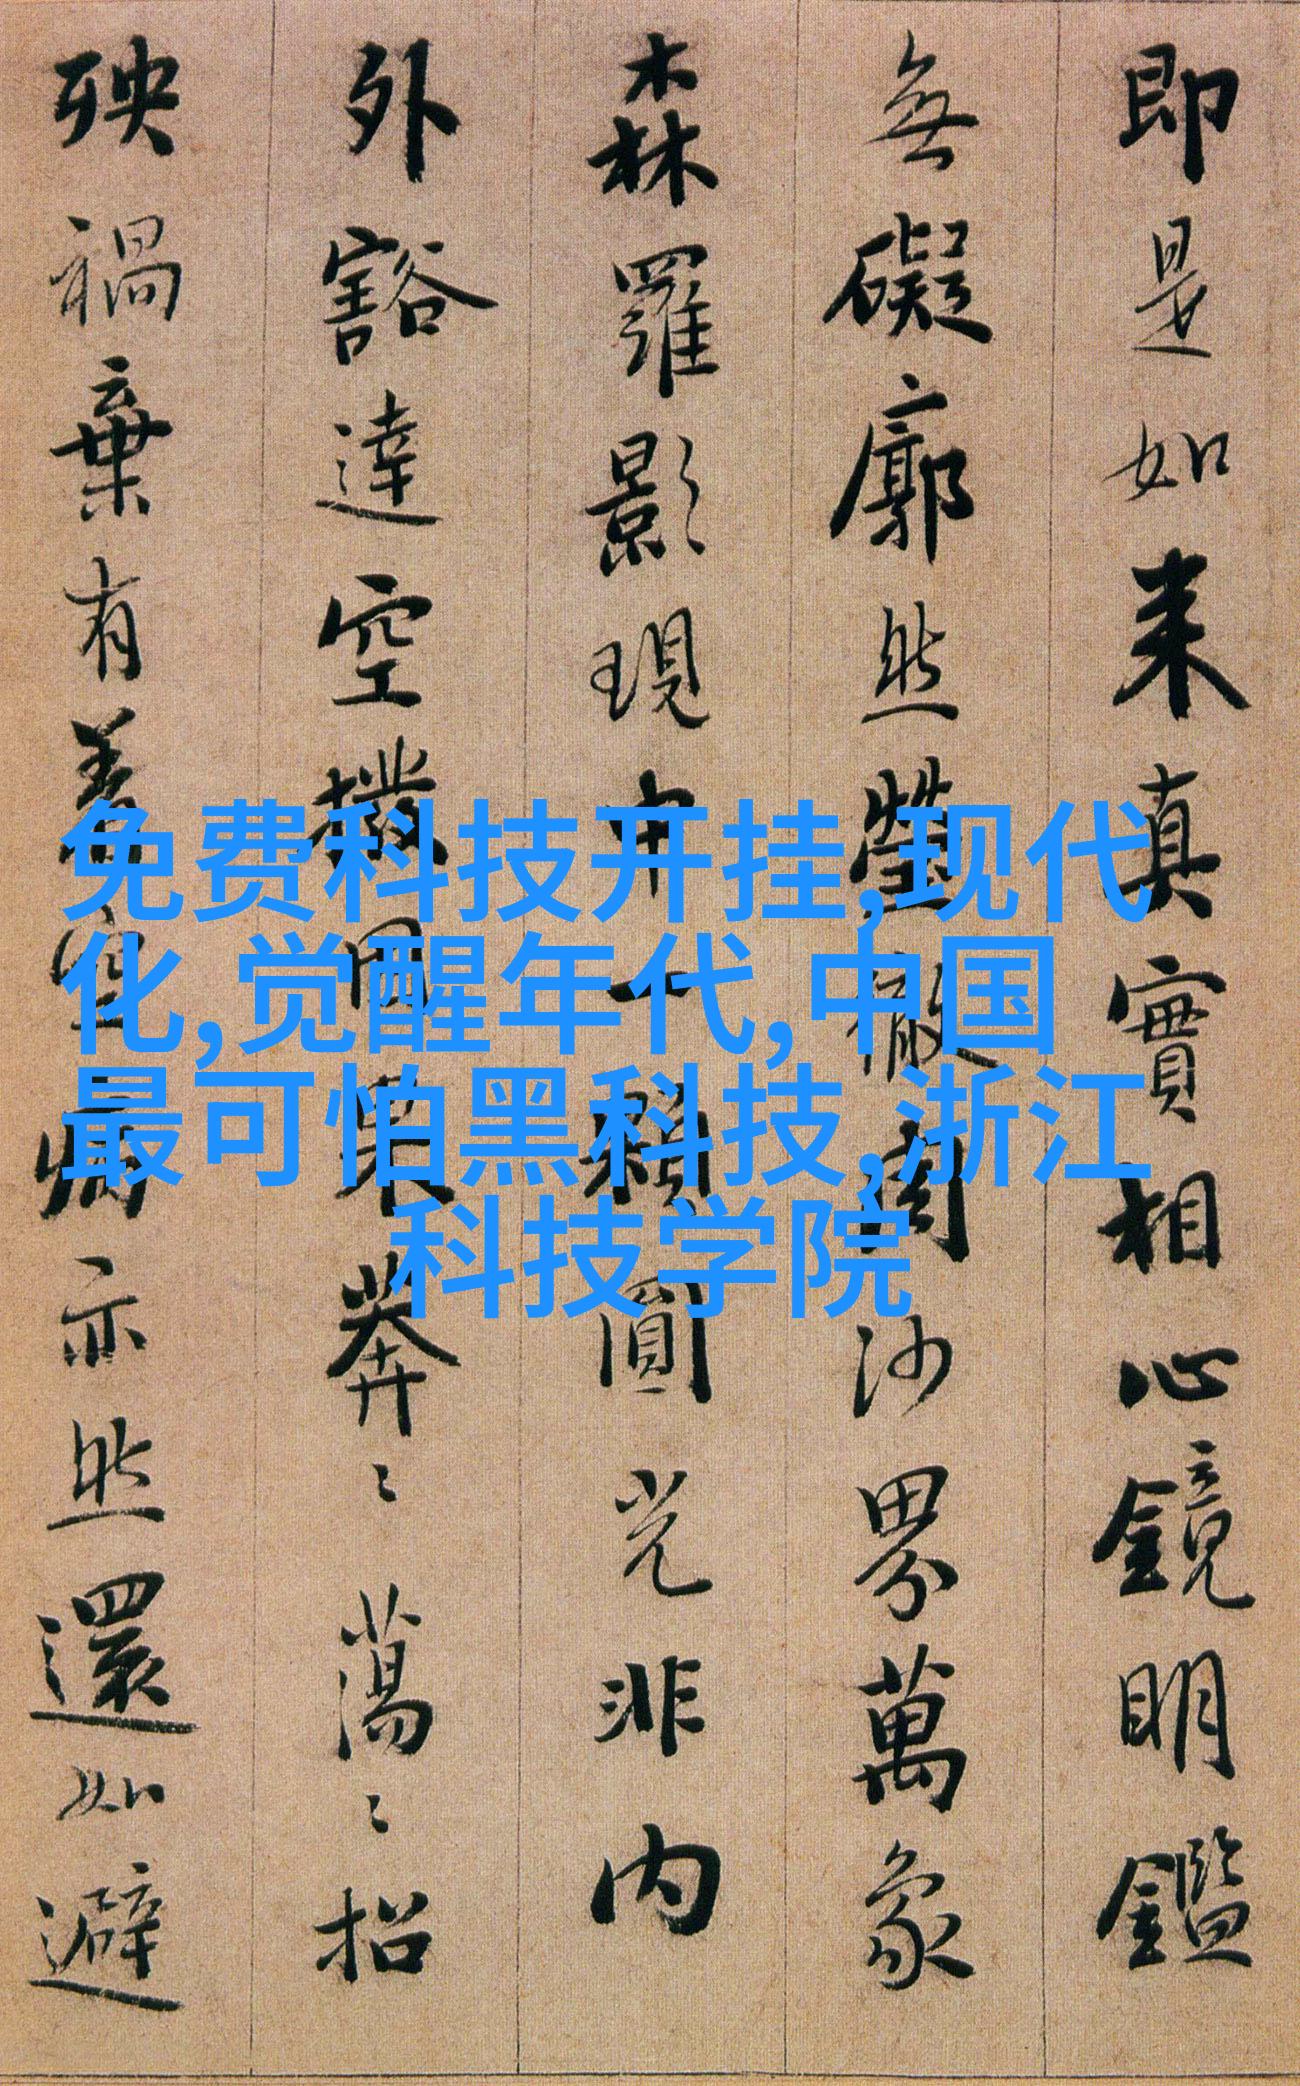 即是如来真實相心鏡明鑑
無礙廓然瑩徹周沙界萬象
森羅影現中一顆圓光非内
外豁達空撥因果莽〻蕩〻招
殃禍棄有着空病亦然還如避
免费科技开挂,现代
化,觉醒年代,中国
最可怕黑科技,浙江
科技学院